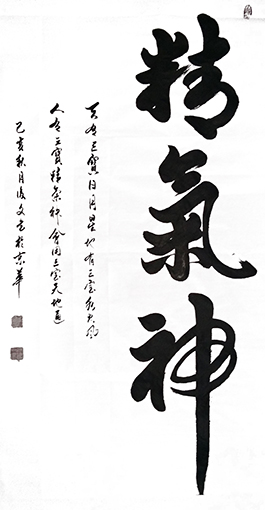 精氣神
天有三寶日月星地有三寶水火風
人有三寶精氣神會用三寶天地通
己亥秋月俊文書於京華